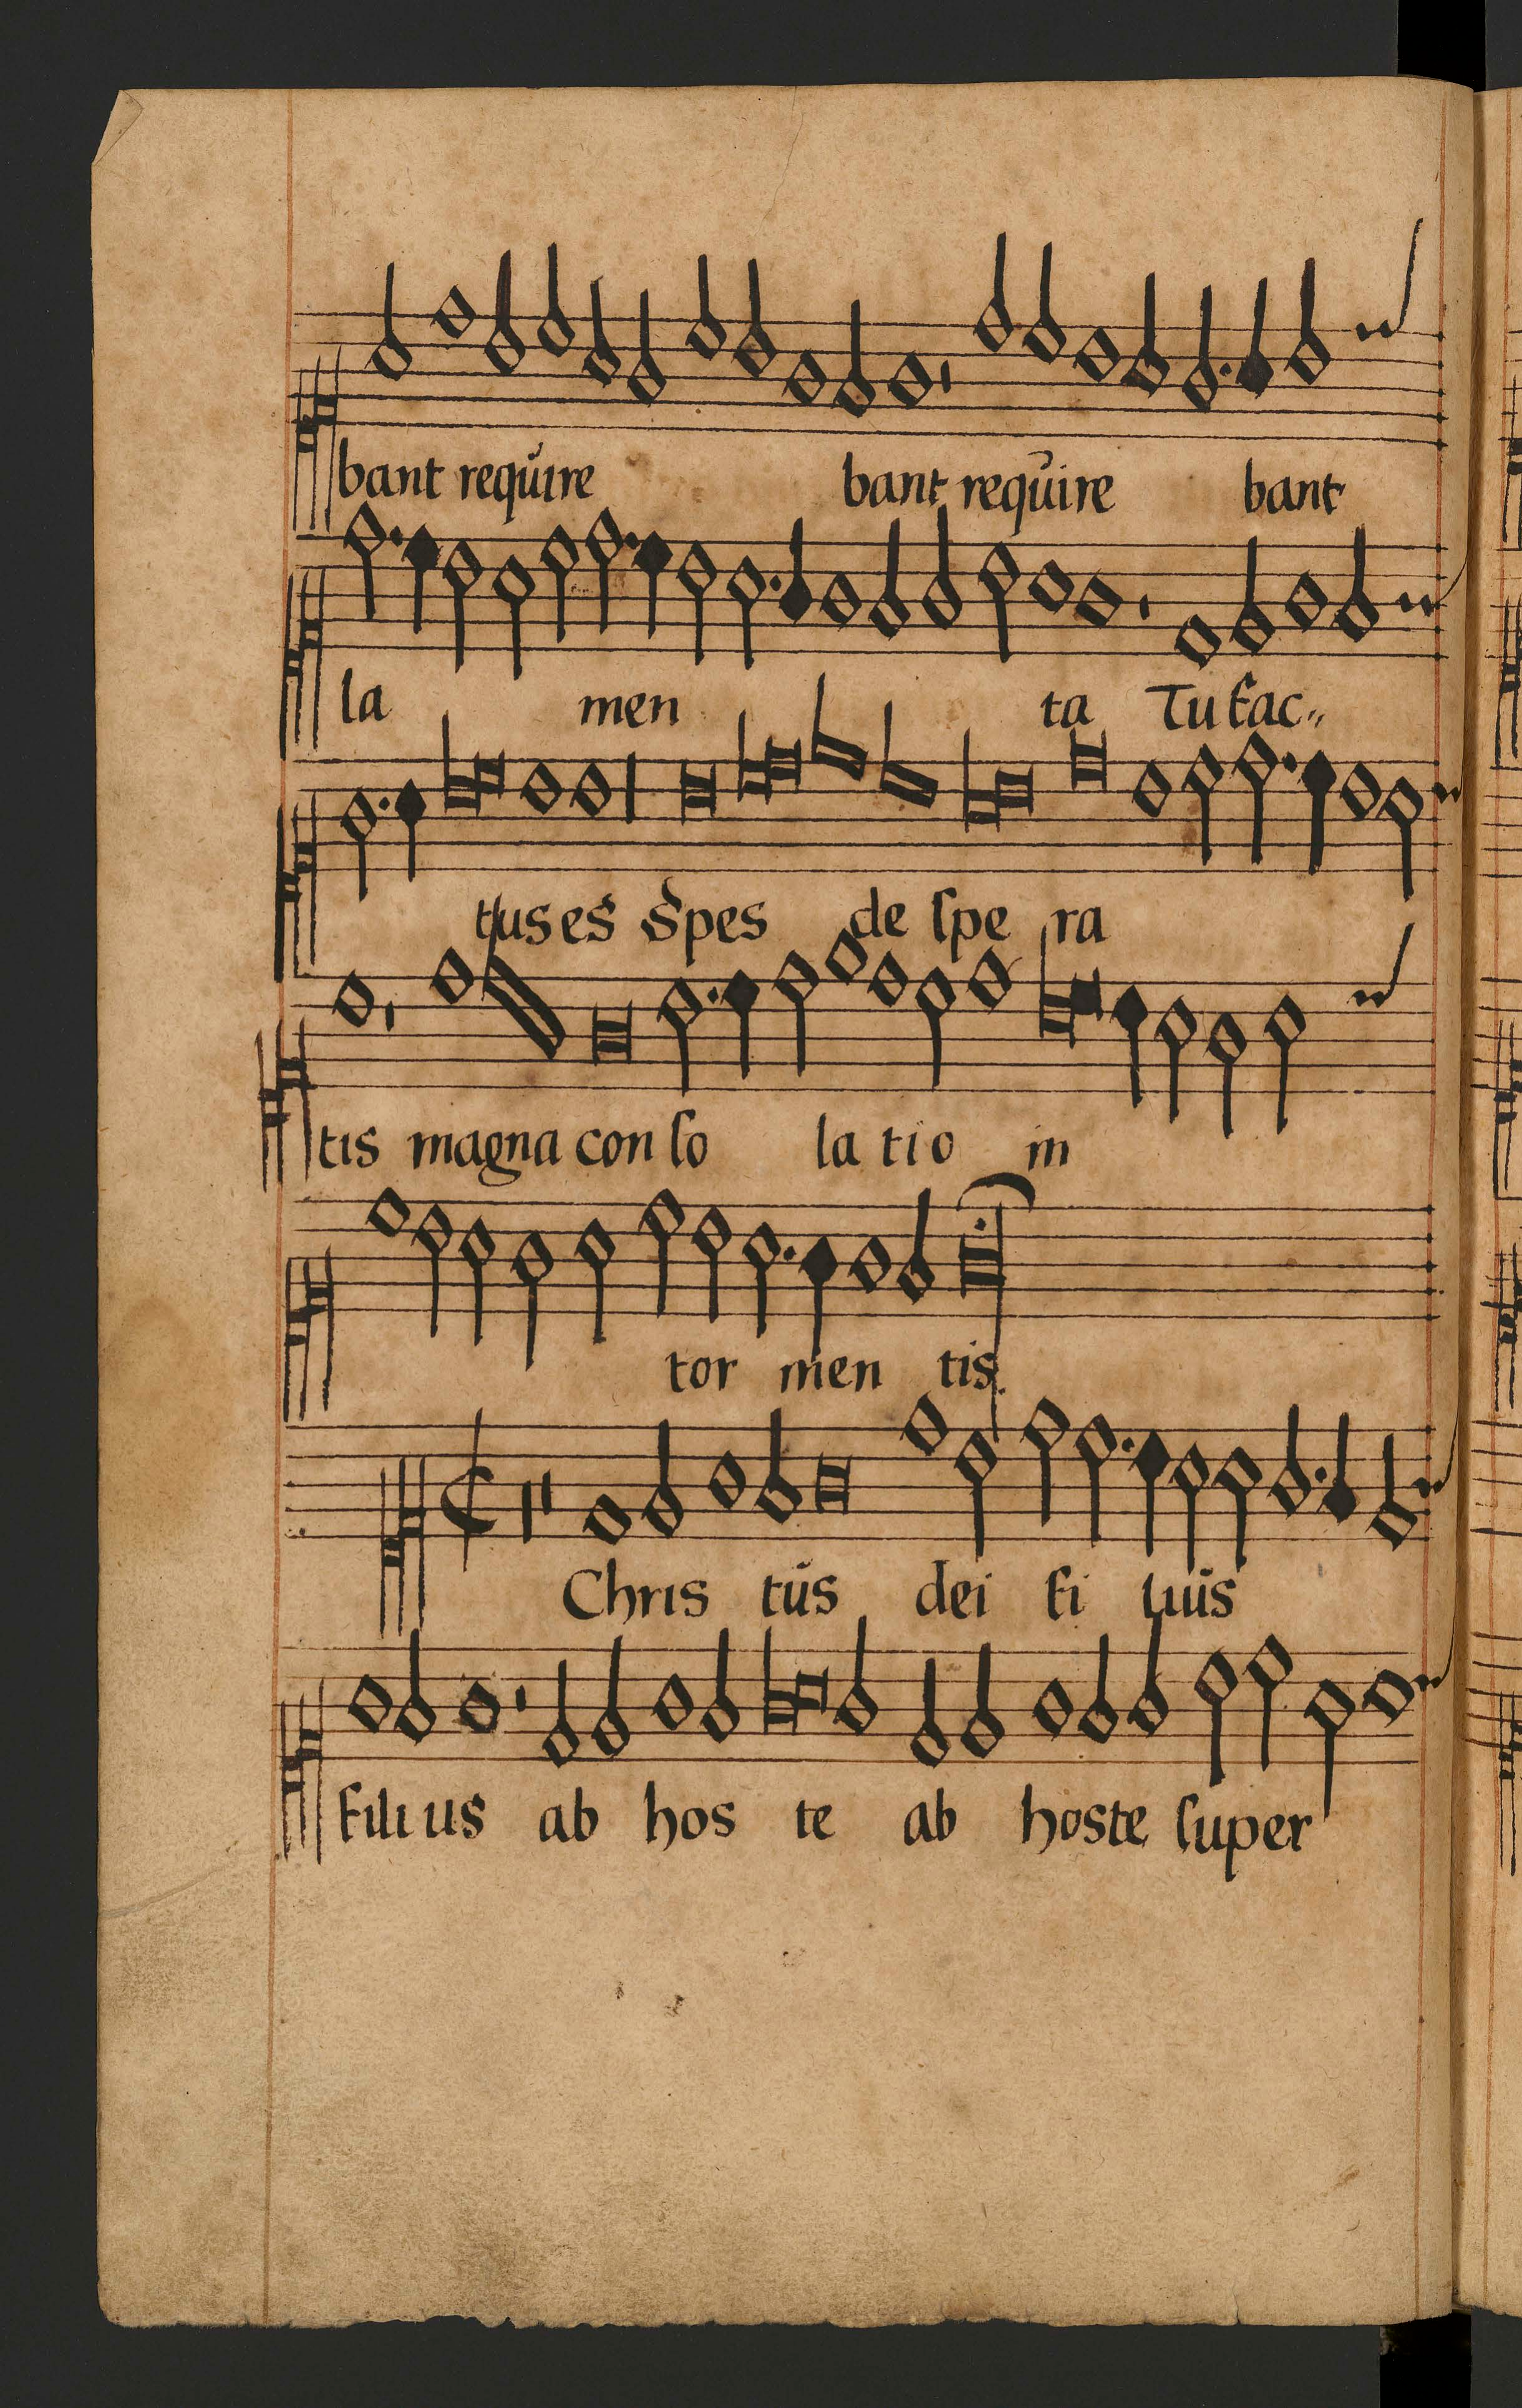 bant require bant require bant
la men ta Tu fac„
tus es Spes de ſpe ra
tis magna con ſo la tio in
tor men tis.
Chris tus dei fi lius
filius ab hos te ab hoste ſuper